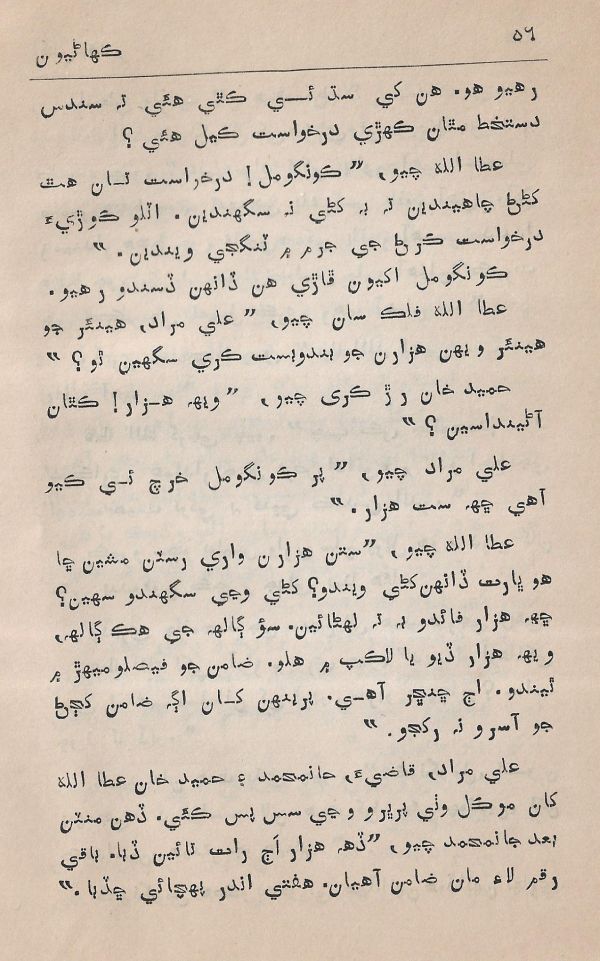 ۵۶
ڪهاڻيون
رهيو هو. هن کي سڌ ئي ڪٿي هئي تہ سندس
دستخط مٿان ڪهڙي درخواست ڪيل هئي ؟
عطا الله چيو, ”ڪونگومل! درخواست تان هٿ
کڻڻ چاهيندين تہ بہ کڻي نہ سگهندين. اٽلو ڪوڙيءَ
درخواست ڪرڻ جي جرم ۾ ٽنگجي ويندين.“
ڪونگومل اکيون ڦاڙي هن ڏانهن ڏسندو رهيو.
عطا الله فلڪ سان چيو, ”علي مراد, هينئر جو
هينئر ويهن هزارن جو بندوبست ڪري سگهين ٿو؟“
حميد خان رڙ ڪري چيو, ”ويهہ هزار! ڪٿان
آڻينداسين ؟“
علي مراد چيو, ”پر ڪونگومل خرچ ئي ڪيو
آهي ڇهہ ست هزار.“
عطا الله چيو, ”ستن هزارن واري رستن مشين ڇا
هو ڀارت ڏانهن کڻي ويندو؟ کڻي وڃي سگهندو سهين؟
ڇهہ هزار فائدو بہ تہ لهڻائين. سؤ ڳالهہ جي هڪ ڳالهہ,
ويهہ هزار ڏيو يا لاڪپ ۾ هلو. ضامن جو فيصلو ميهڙ ۾
ٿيندو. اڄ ڇنڇر آهي. پرينهن کان اڳہ ضامن کڄڻ
جو آسرو نہ رکجو.“
علي مراد, قاضيءَ, جانمحمد ۽ حميد خان عطا الله
کان موڪل وٺي پريرو وڃي سس پس ڪئي. ڏهن منٽن
بعد جانمحمد چيو, ”ڏهہ هزار اَڄ رات تائين ڏبا. باقي
رقم لاءِ مان ضامن آهيان. هفتي اندر پهچائي ڇڏبا.“